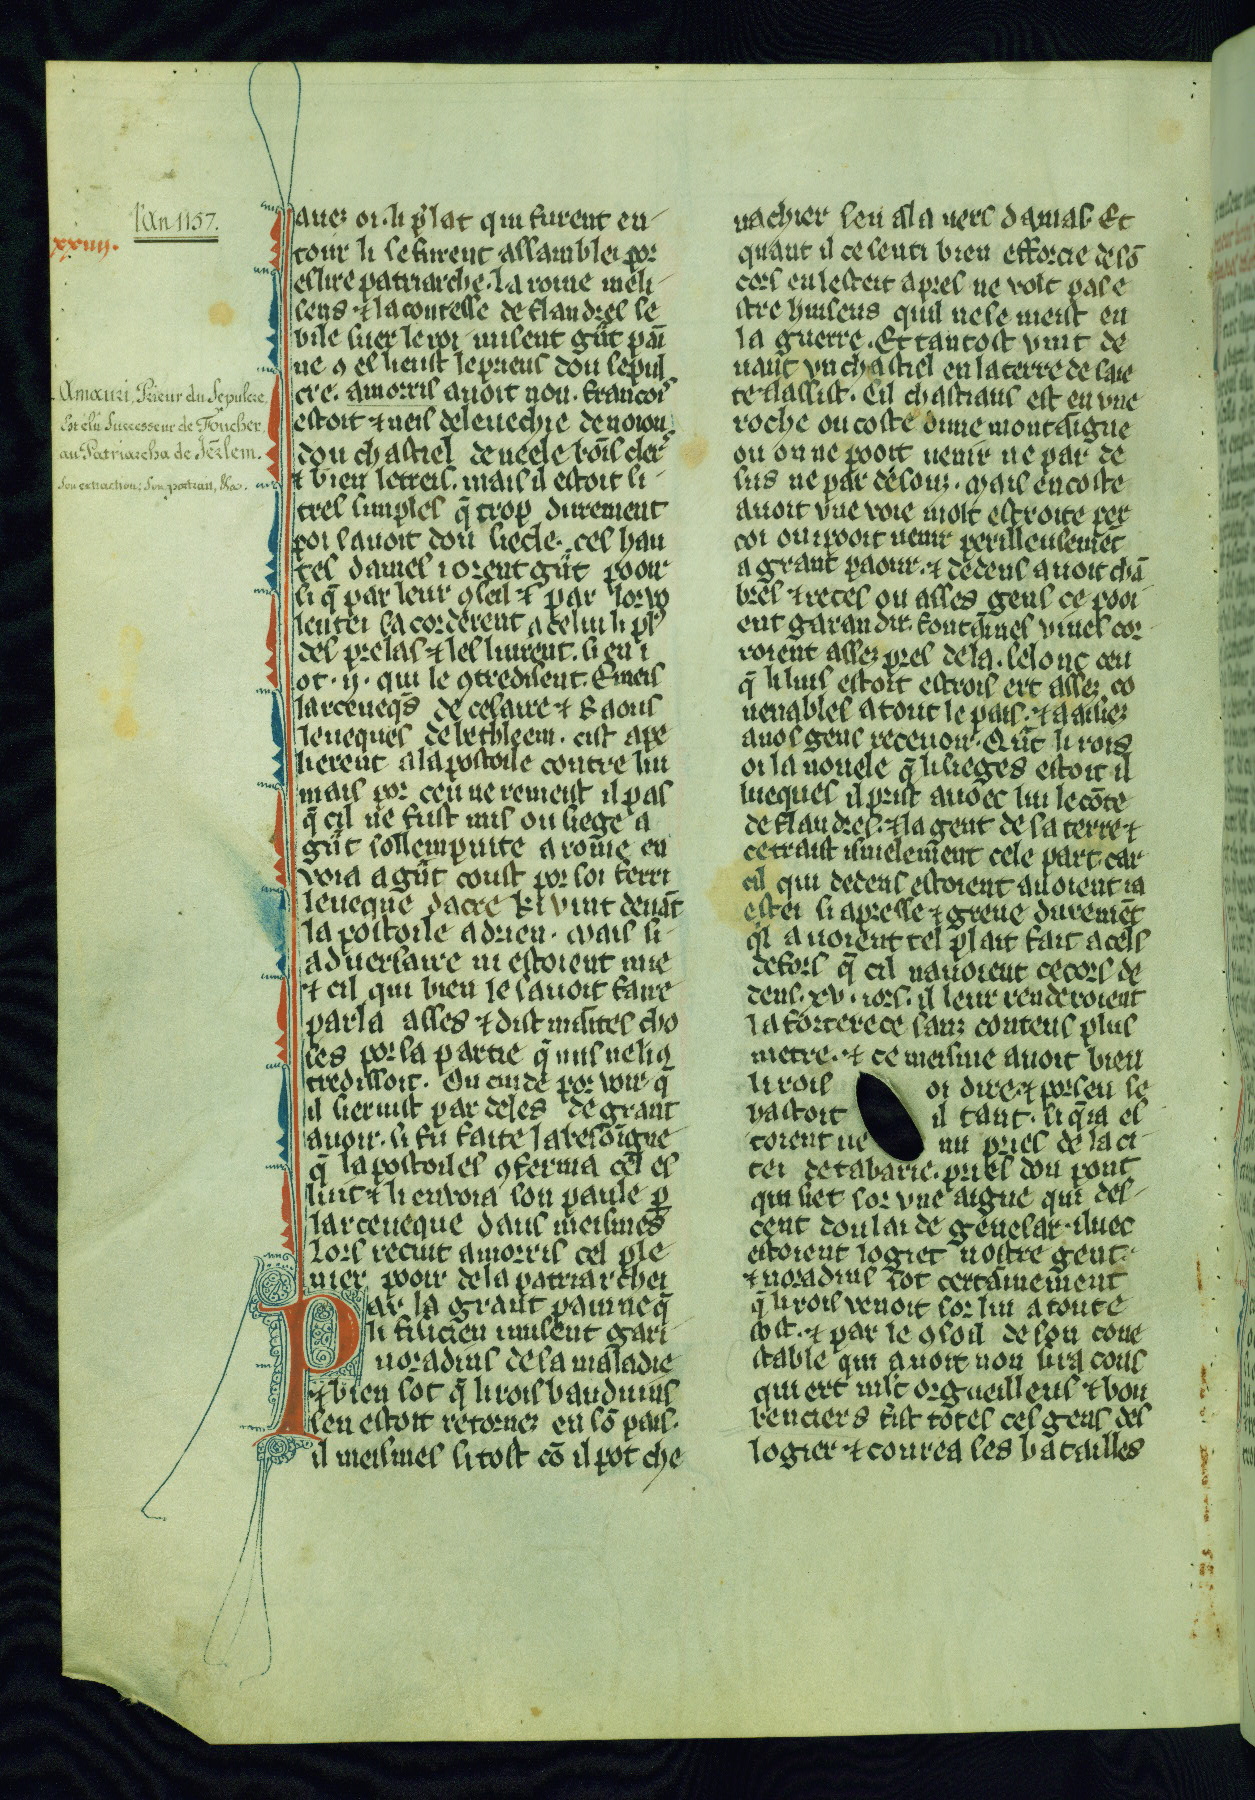 l'An 1157.
xxiiij.
Amauri, Prieur du Sepulcre,
Est élu Successeur de Foucher,
au Patriarcha de Jérlem.
Son extraction; Son portrait, &c.
auez oi. li p̃lat qui furent en
tour li se furent assamblei por
eslire patriarche. La roine meli
sens ⁊ la contesse de flandres se
rõie suer le roi misent g̃nt pai
ne ꝯ el lieust le prieus dou sepul
cre. amorris auoit non. francois
estoit ⁊ neis de leuechie de noion.
dou chastiel de neele. bõs clers
⁊ bien letreis. mais il estoit si
tres simples q̃ trop durement
poi sauoit dou siecle. ces hau
tes dames i orent g̃nt pooir
si q̃ par leur ꝯseil ⁊ par lor vo
lentei sa corderent a celui li pl'
des prelas ⁊ les liurent. si en i
ot .ij. qui le ꝯtredisent. Erneis
larceueqs̃ de cesaire ⁊ Raous
leueques de bethleem. cist ape
lierent a lapostoile contre lui
mais por ceu ne remenst il pas
q̃ cil ne fust mis ou siege a
g̃nt sollempnite a rom̃e en
voia a g̃nt coust por soi ferri
leueque dacre ki vint deuãt
lapostoile adrien. mais si
aduersaire ni estoient mie
⁊ cil qui bien le sauoit faire
parla asses ⁊ dist maites cho
ses por sa partie q̃ nus ne li ꝯ
tredissoit. On cuide por voir q̃
il seruist par deles de grant
auoir. si fu faite la besoigne
q̃ lapostoiles ꝯferma cel es
lint ⁊ li enuoia son paule p̱
larceueque dans meismes
Lors recuit amorris cel ple
nier pooir de la patriarchei
Par la grant painne q̃
li fisicien misent gari
noradins de sa maladie
⁊ bien sot q̃ li rois bauduins
sen estoit retornez en sõ pais.
il meismes si tost cõ il pot che
uachier sen ala vers damas Et
quant il ce senti bien efforcie de sõ
cors en lesteit apres ne volt pas e
stre huiseus quil ne se meist en
la guerre. Et tantost vint de
uant vn chastiel en la terre de saie
te ⁊ lassist. Cil chastiaus est en vne
roche ou coste dune montaigne
ou on ne pooit uenir ne par de
sus ne par desouz. mais en coste
auoit vne voie molt estroite per
coi on i pooit uenir perilleusemẽt
a grant paour. ⁊ dedens auoit chã
bres ⁊ reces ou asses gens ce pooi
ent garandir. fontainnes viues cor
roient assez pres de la. selonc ceu
q̃ li luis estoit estrois ert assez co
uenables a tout le pais. ⁊ a aisiez
a nos gens receuoir. Quñt li rois
oi la nouele q̃ li sieges estoit il
lueques il prist auoec lui le cõte
de flandres. ⁊ la gent de sa terre ⁊
cetraist isnielement cele part. car
cil qui dedens estoient auoient ia
estei si apresse ⁊ greue duremẽt
ql̃ auoient tel plait fait a cels
defors q̃ cil nauoient cecors de
dens .xv. iors. il leur renderoient
la forterece sanz contens plus
metre. ⁊ ce meisme auoit bien
li rois oi dire ⁊ por seu se
hastoit il tant. si q̃ ia es
toient ue nu pries de la ci
tei de tabarie. pries dou pont
qui siet sor vne aigue qui des-
cent dou lai de genesar. iluec
estoient logiet nostre gent.
⁊ noradins sot certainnement
q̃ li rois venoit sor lui a toute
ost. ⁊ par le ꝯsoil de son cone
stable qui auoit non sira cons
qui ert mlt orgueilleus ⁊ bon
renciers fist totes ces gens des
logier ⁊ courea ses batailles